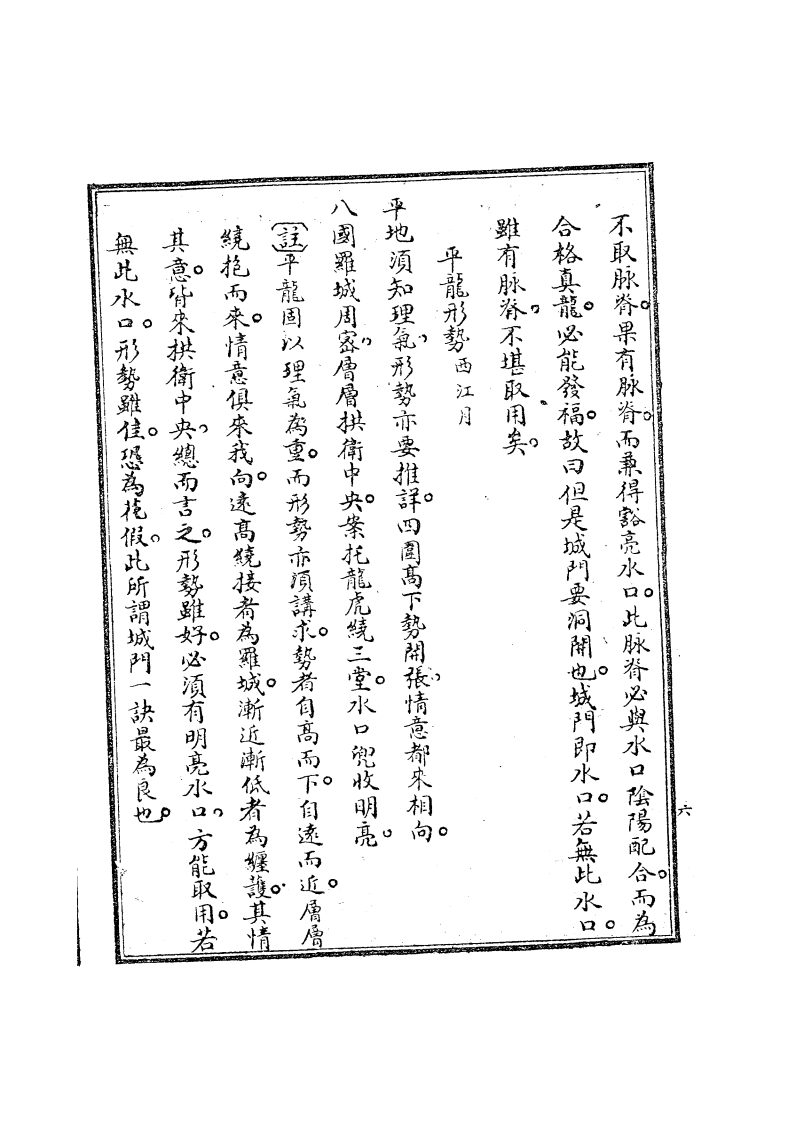 不取脉脊。果有脉脊。而兼得豁亮水口。此脉脊必與水口陰陽配合。而為
合格真龍。必能發福。故曰但是城門要洞開也。城門即水口。若無此水口。
雖有脉脊、不堪取用矣、
平龍形勢西江月
平地須知理氣、形勢亦要推詳。四圍高下勢開張、情意都來相向。
八國羅城周密、層層拱衛中央。案托龍虎繞三堂。水口兜收明亮、
註平龍固以理氣為重。而形勢亦須講求。勢者自高而下。自遠而近。層層
繞抱而來。情意俱來我向。遠高繞接者為羅城。漸近漸低者為纏護。其情
其意。皆來拱衛中央、總而言之。形勢雖好。必須有明亮水口、方能取用。若
無此水口。形勢雖佳。恐為花假、此所謂城門一訣最為良也。
六